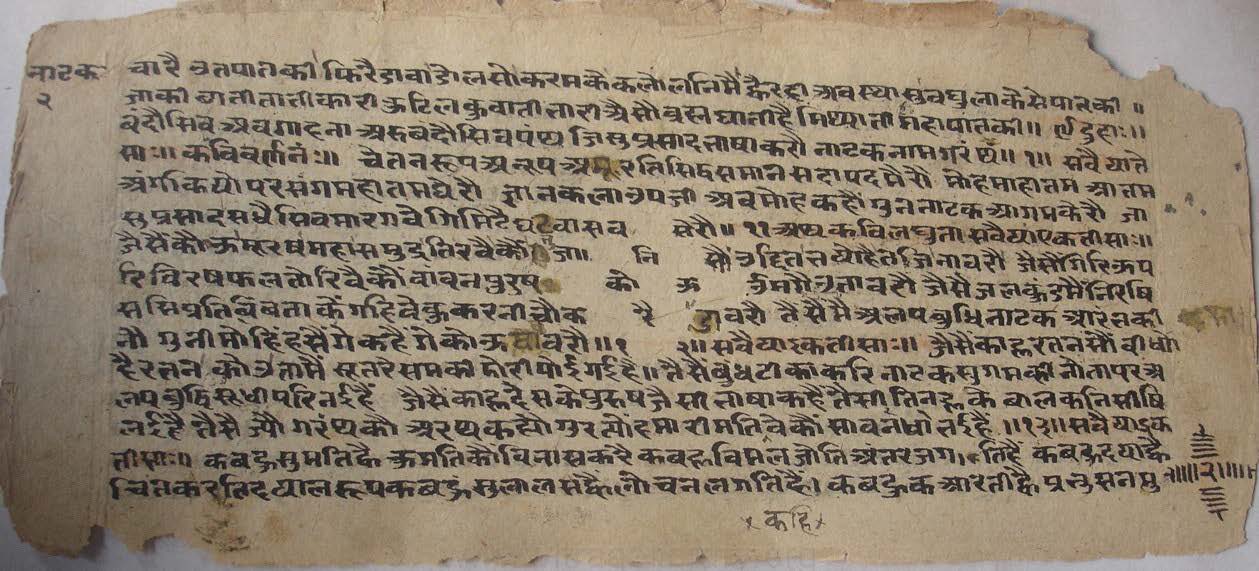 नाटक
२
चारै चतपातकी फिरै डावाडोलसो करमकैकलोलनिमैं ह्वैरही अवस्था सुवघुलाकेसेपातकी ॥
जाकी छाती ताती कारी कुटिल कुवाती भारी अैसौ ब्रह्मघाती है मिथ्याती महापातकी॥ ९ दुहाः॥
वंदौ सिव अवगाहना अरु वंदौ सिवपंथ जिसु प्रसाद भाषा करौ नाटक नाम गरंथ॥ १॥ सवैया ते
साः॥ कविवर्णनंः॥ चेतनरूप अनूप अमूरति सिद्धसमान सदा पद मेरौ मोह माहातम आतम
अंग कियो परसंग महातम घेरौ ज्ञानकला उपजी अब मोह कहौं गुन नाटक आगमकेरौ जा
सु प्रसाद सधै सिवमारग वेगि मिटै घटवास वसेरौ॥ ११ अथ कवि लघुता सवैया एकतीसाः॥
जैसैं कौऊ मूरष महासमुद्र तिरवैकौं भुजानिसौं उदित भयो है तजि नावरौ जैसैं गिरि ऊप
रि विरषफल तोरिवैकौं वावन पुरुष कोऊ उमगै उतावरौ जैसै जलकुंडमैं निरषि
ससि प्रतिबिंब ताकें गहिवेकुं कर नीचौ करै डावरौ तैसैं मैं अलपबुधि नाटक आरंभ की
नौ गुनी मोहि हसैंगे कहैंगे कोऊ बावरौ॥ १२॥ सवैया इकतीसाः॥ जैसैं काहू रतनसौं वीध्यो
है रतन कोउ तामैं सूत रेसमकी डोरी पोई गई है॥ तैसैं बुध टीका करि नाटक सुगम कीनौ तापर अ
लपबुद्धि सूधी परिनई है जैसैं काहू देसके पुरुष जैसी भाषा कहैं तैसी तिनहूके बालकनि सीषि
लई है तैसै ज्यौं गरंथकौ अरथ कह्यो गुर त्यों हमारी मति कहिवेकौं सावधान भई है॥१३॥ सवैया इक
तीसाः॥ कबहू सुमति ह्वै कुमतिकौ विनास करै कबहू विमल जोति अंतर जगति है कबहू दया ह्वै
चित करति दयालरूप कबहू सुलालसा ह्वै लोचन लगति है। कबहूक आरती ह्वै प्रभु सनमु
॥२॥
कहि